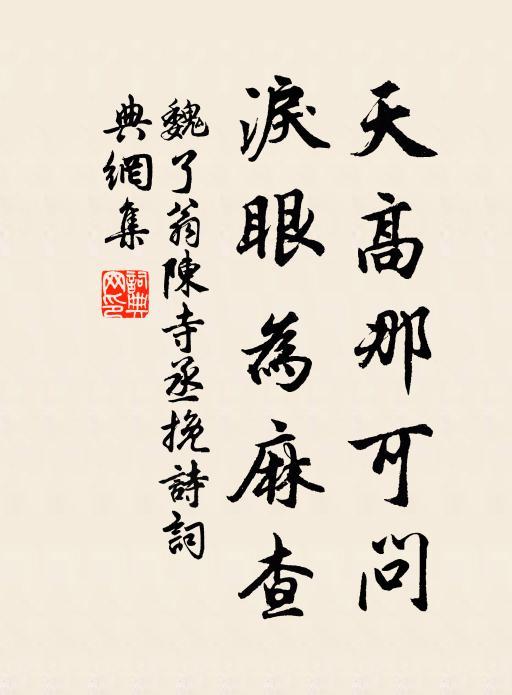 天高那可問
淚眼為麻查
魏了翁陳寺丞挽詩詞
典網集
詞典網印